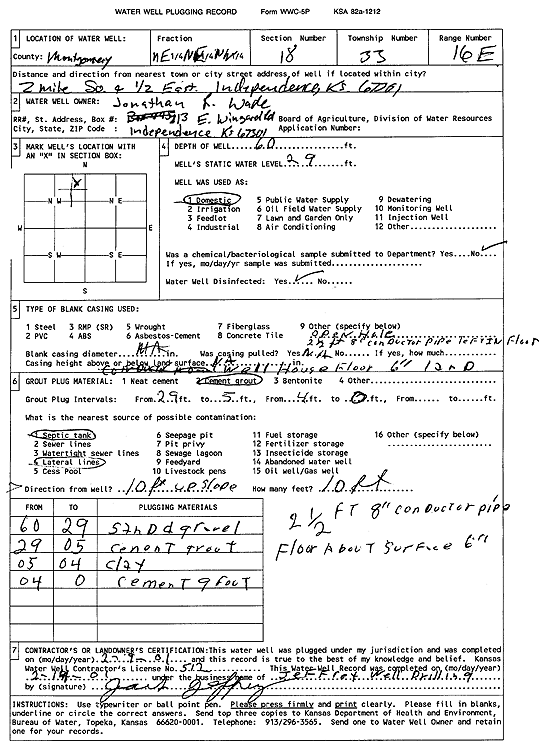 WATER WELL PLUGGING RECORD Form WWC-5P KSA 82a-1212
1 LOCATION OF WATER WELL: Fraction Section Number Township Number Range Number
County: Montgomery NE1/4 1/4 1/4 18 33 16 E
Distance and direction from nearest town or city street address of well if located within city?
2 mile So & 1/2 East, Independence, KS 67301
2 WATER WELL OWNER: Jonathan L. Wade
RR#, St. Address, Box #: 713 E. Board of Agriculture, Division of Water Resources
City, State, ZIP Code : Independence Ks 67301 Application Number:
3 MARK WELL'S LOCATION WITH AN "X" IN SECTION BOX:
N
X
N W N E
W E
S W S E
S
4 DEPTH OF WELL 60 ft.
WELL'S STATIC WATER LEVEL 29 ft.
WELL WAS USED AS:
1 Domestic 5 Public Water Supply 9 Dewatering
2 Irrigation 6 Oil Field Water Supply 10 Monitoring Well
3 Feedlot 7 Lawn and Garden Only 11 Injection Well
4 Industrial 8 Air Conditioning 12 Other
Was a chemical/bacteriological sample submitted to Department? Yes No ✓
If yes, mo/day/yr sample was submitted
Water Well Disinfected: Yes ✓ No
5 TYPE OF BLANK CASING USED:
1 Steel 3 RMP (SR) 5 Wrought 7 Fiberglass 9 Other (specify below)
2 PVC 4 ABS 6 Asbestos-Cement 8 Concrete Tile open Hole
2½ ft 8" conductor pipe Floor
Blank casing diameter NA in. Was casing pulled? Yes NA No If yes, how much
Casing height above or below land surface NA in.
Well House Floor 6"
6 GROUT PLUG MATERIAL: 1 Neat cement 2 Cement grout 3 Bentonite 4 Other
Grout Plug Intervals: From 29 ft. to 5 ft., From 4 ft. to 0 ft., From to ft.
What is the nearest source of possible contamination:
1 Septic tank 6 Seepage pit 11 Fuel storage 16 Other (specify below)
2 Sewer lines 7 Pit privy 12 Fertilizer storage
3 Watertight sewer lines 8 Sewage lagoon 13 Insecticide storage
4 Lateral lines 9 Feedyard 14 Abandoned water well
5 Cess Pool 10 Livestock pens 15 Oil well/Gas well
Direction from well? 10 ft upslope How many feet? 10 ft
FROM TO PLUGGING MATERIALS
60 29 Sand gravel
29 05 cement grout
05 04 clay
04 0 cement grout
2 1/2 FT 8" conductor pipe
Floor About Surface 6"
7 CONTRACTOR'S OR LANDOWNER'S CERTIFICATION: This water well was plugged under my jurisdiction and was completed
on (mo/day/year) 2-9-01 and this record is true to the best of my knowledge and belief. Kansas
Water Well Contractor's License No. 512 This Water Well Record was completed on (mo/day/year)
under the business name of Jeffrey Well Drilling
by (signature) Jeffrey
INSTRUCTIONS: Use typewriter or ball point pen. Please press firmly and print clearly. Please fill in blanks,
underline or circle the correct answers. Send top three copies to Kansas Department of Health and Environment,
Bureau of Water, Topeka, Kansas 66620-0001. Telephone: 913/296-3565. Send one to Water Well Owner and retain
one for your records.